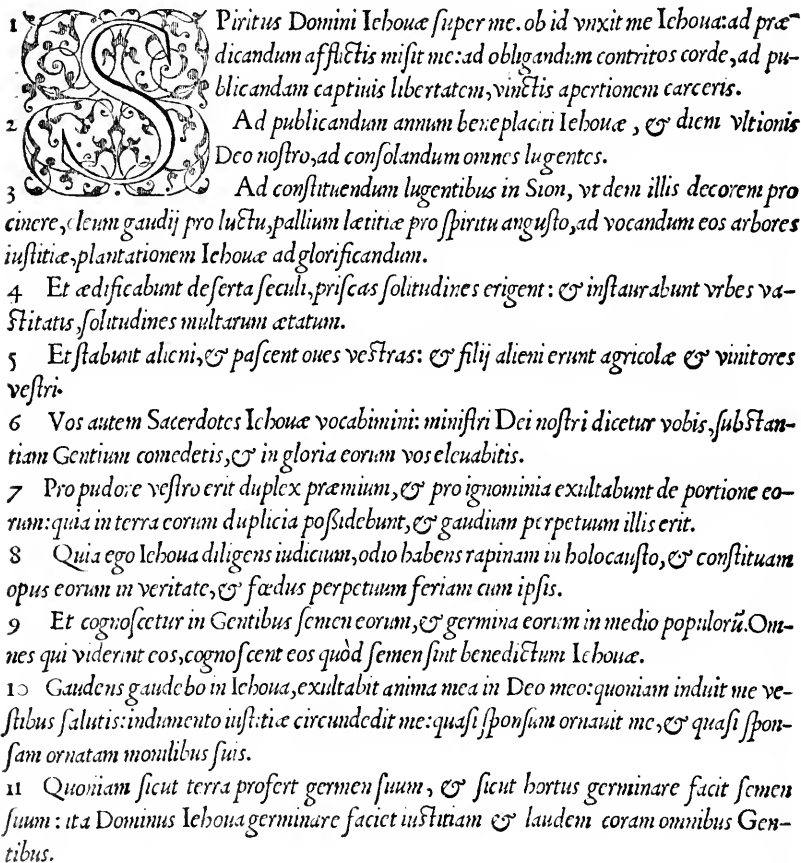 1 SPiritus Domini Iehouæ ſuper me. ob id vnxit me Iehoua: ad præ-
dicandum afflictis miſit me: ad obligandum contritos corde, ad pu-
blicandam captiuis libertatem, vinctis apertionem carceris.
2 Ad publicandum annum beneplaciti Iehouæ, & diem vltionis
Deo noſtro, ad conſolandum omnes lugentes.
3 Ad conſtituendum lugentibus in Sion, vt dem illis decorem pro
cinere, oleum gaudij pro luctu, pallium lætitiæ pro ſpiritu anguſto, ad vocandum eos arbores
iuſtitiæ, plantationem Iehouæ ad glorificandum.
4 Et ædificabunt deſerta ſeculi, priſcas ſolitudines erigent: & inſtaurabunt vrbes va-
ſtitatis, ſolitudines multarum ætatum.
5 Et ſtabunt alieni, & paſcent oues veſtras: & filij alieni erunt agricolæ & vinitores
veſtri.
6 Vos autem Sacerdotes Iehouæ vocabimini: miniſtri Dei noſtri dicetur vobis, ſubſtan-
tiam Gentium comedetis, & in gloria eorum vos eleuabitis.
7 Pro pudore veſtro erit duplex præmium, & pro ignominia exultabunt de portione eo-
rum: quia in terra eorum duplicia poſsidebunt, & gaudium perpetuum illis erit.
8 Quia ego Iehoua diligens iudicium, odio habens rapinam in holocauſto, & conſtituam
opus eorum in veritate, & fœdus perpetuum feriam cum ipſis.
9 Et cognoſcetur in Gentibus ſemen eorum, & germina eorum in medio populorũ. Om-
nes qui viderint eos, cognoſcent eos quòd ſemen ſint benedictum Iehouæ.
10 Gaudens gaudebo in Iehoua, exultabit anima mea in Deo meo: quoniam induit me ve-
ſtibus ſalutis: indumento iuſtitiæ circundedit me: quaſi ſponſum ornauit me, & quaſi ſpon-
ſam ornatam monilibus ſuis.
11 Quoniam ſicut terra profert germen ſuum, & ſicut hortus germinare facit ſemen
ſuum: ita Dominus Iehoua germinare faciet iuſtitiam & laudem coram omnibus Gen-
tibus.